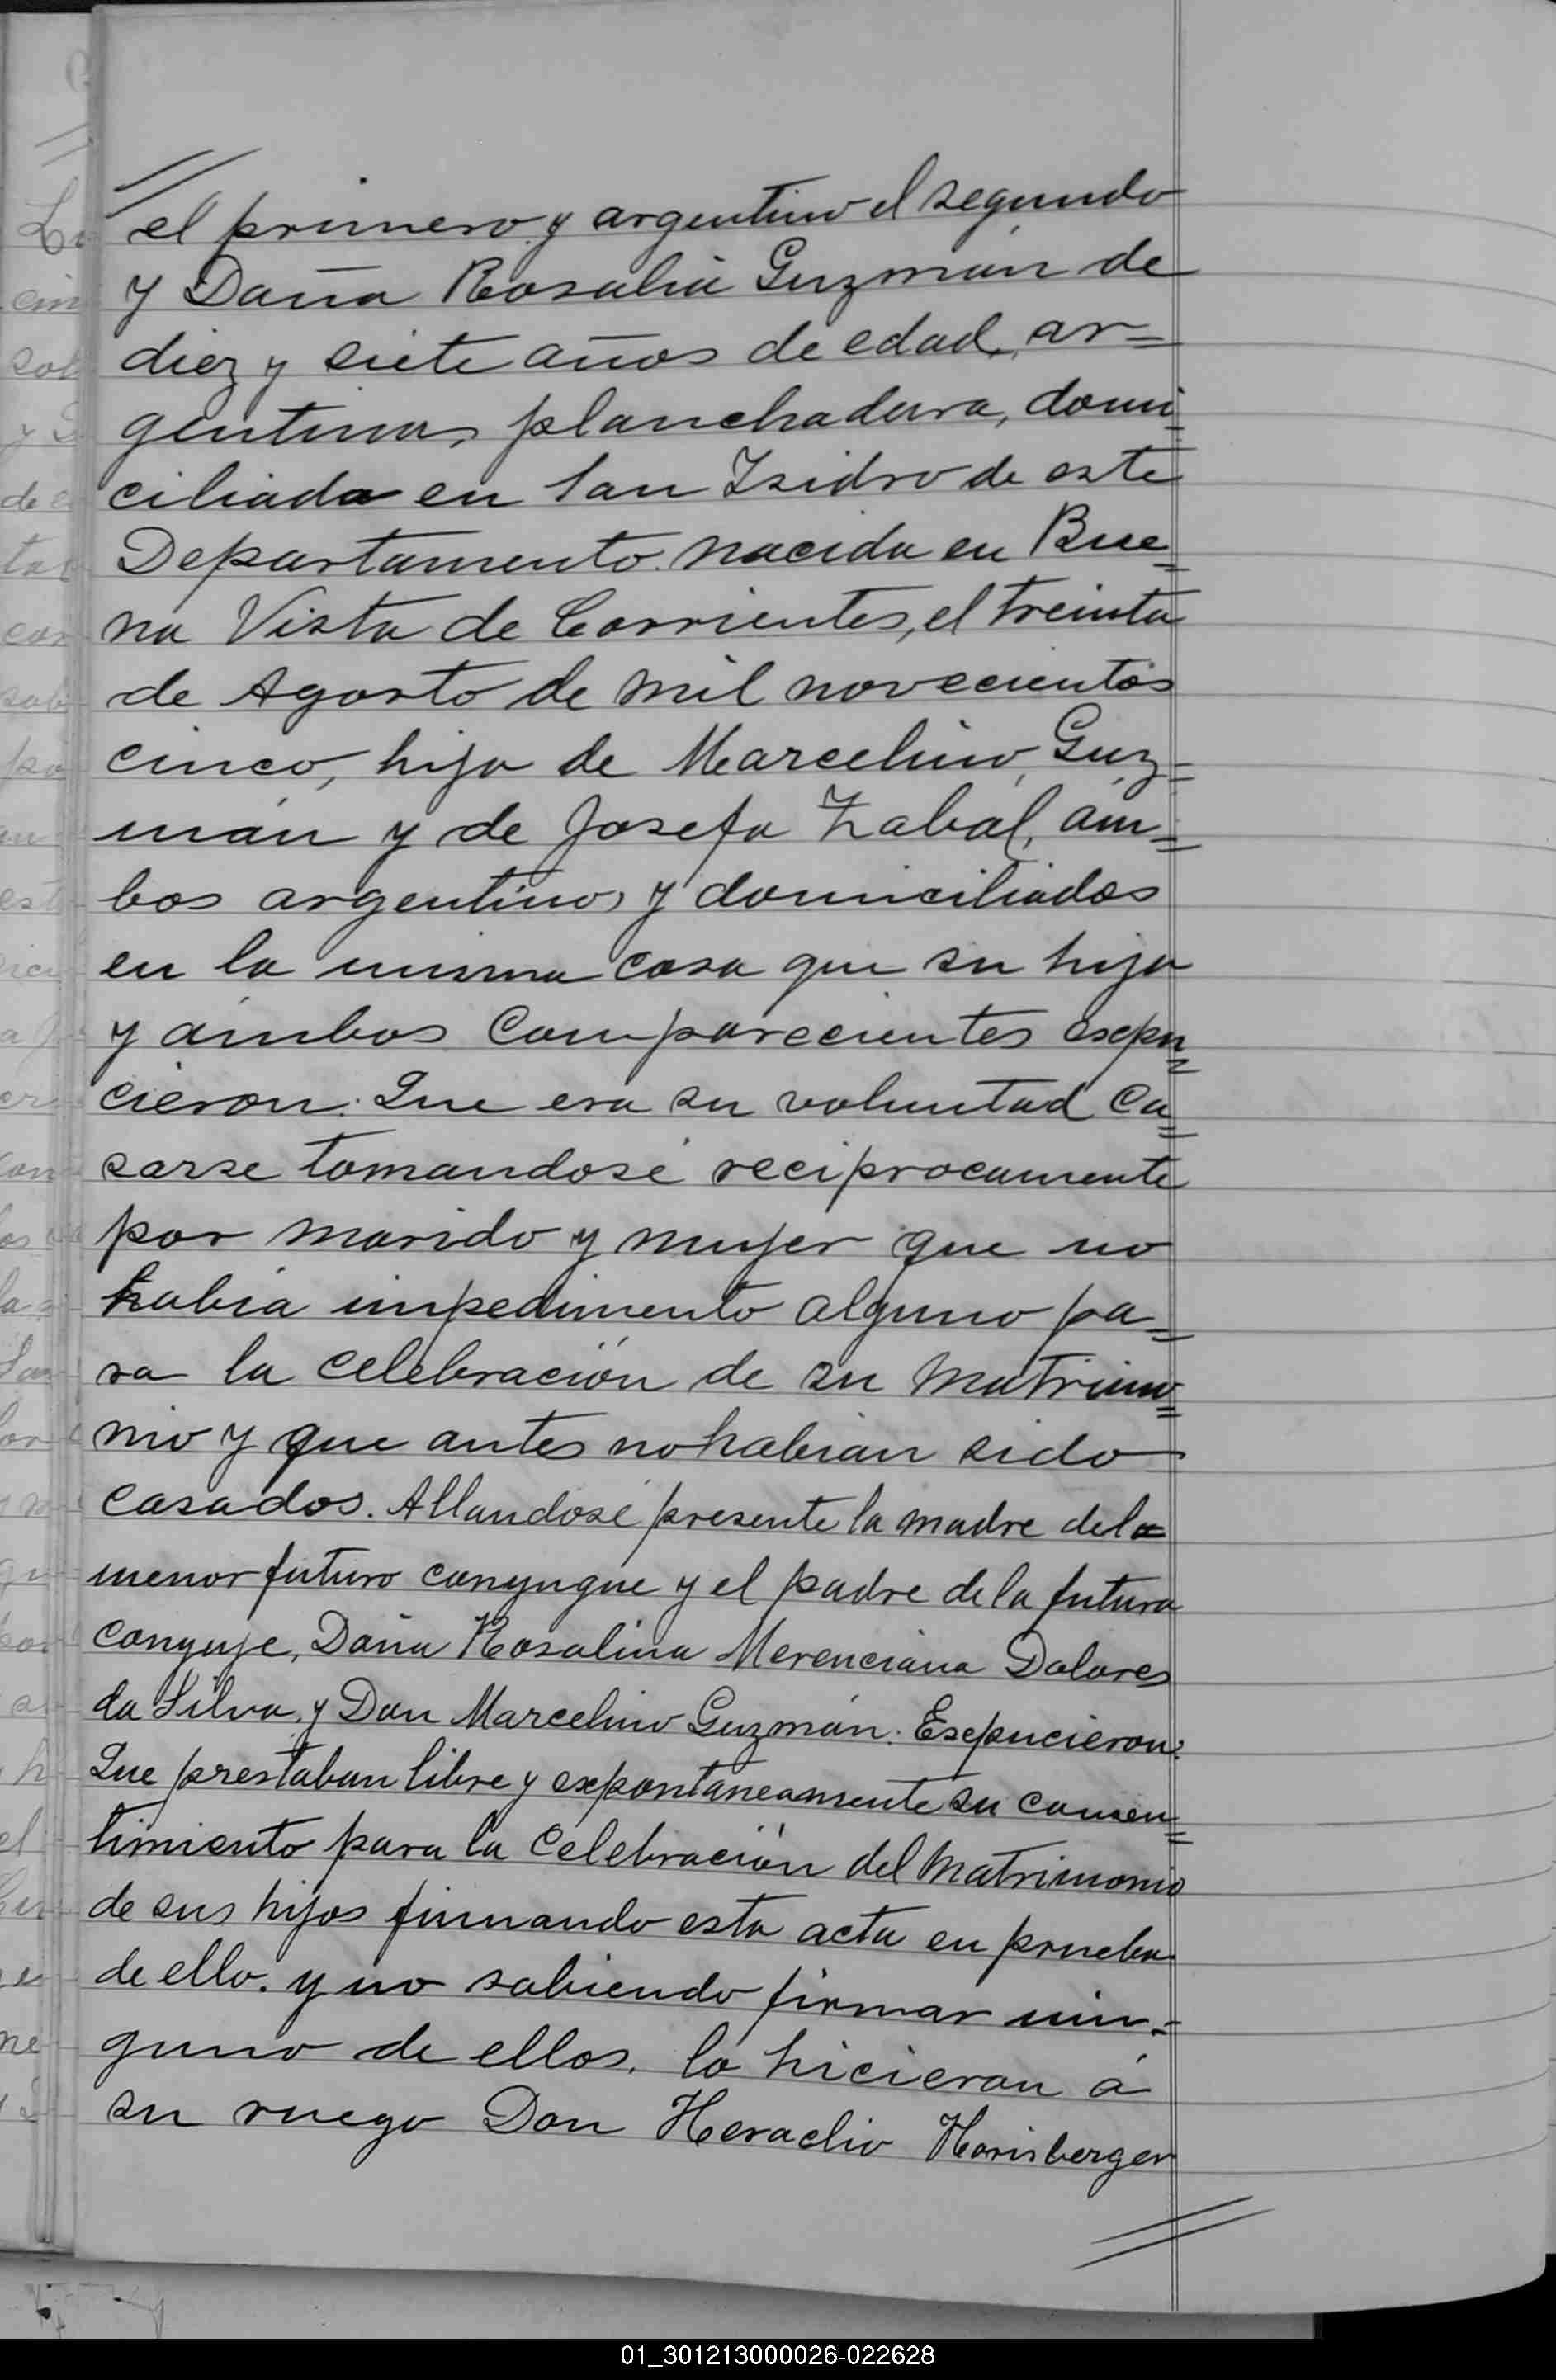 el primero y argentino el segundo
y Doña Rosalia Guzmán de
diez y siete años de edad, ar=
gentina, planchadora, domi=
ciliada en San Isidro de este
Departamento nacida en Bue=
na Vista de Corrientes, el treinta
de Agosto de mil novecientos
cinco, hija de Marcelino Guz=
mán y de Josefa Zabal, am=
bos argentinos y domiciliados
en la misma casa que su hija
y ámbos comparecientes esepu=
cieron: Que era su voluntad ca=
sarse tomandosé reciprocamente
por marido y mujer que no
había impedimento alguno pa=
ra la celebración de su matrimo=
nio y que antes no habían sido
casados. Allandosé presente la madre de la
menor futuro conyugue y el padre de la futura
conyuje, Doña Rosalina Merenciana Dolores
da Silva, y Don Marcelino Guzmán: Esepucieron:
Que prestaban libre y expontaneamente su consen=
timiento para la celebración del matrimonio
de sus hijos firmando esta acta en prueba
de ello. y no sabiendo firmar nin=
guno de ellos, lo hicieron á
su ruego Don Heraclio Harisberger
01_301213000026-022628